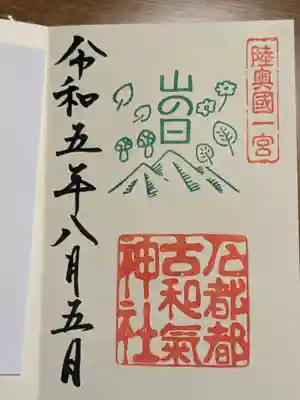 陸奧國一宮
山の日
石都都
古和氣
神社
令和五年八月五日